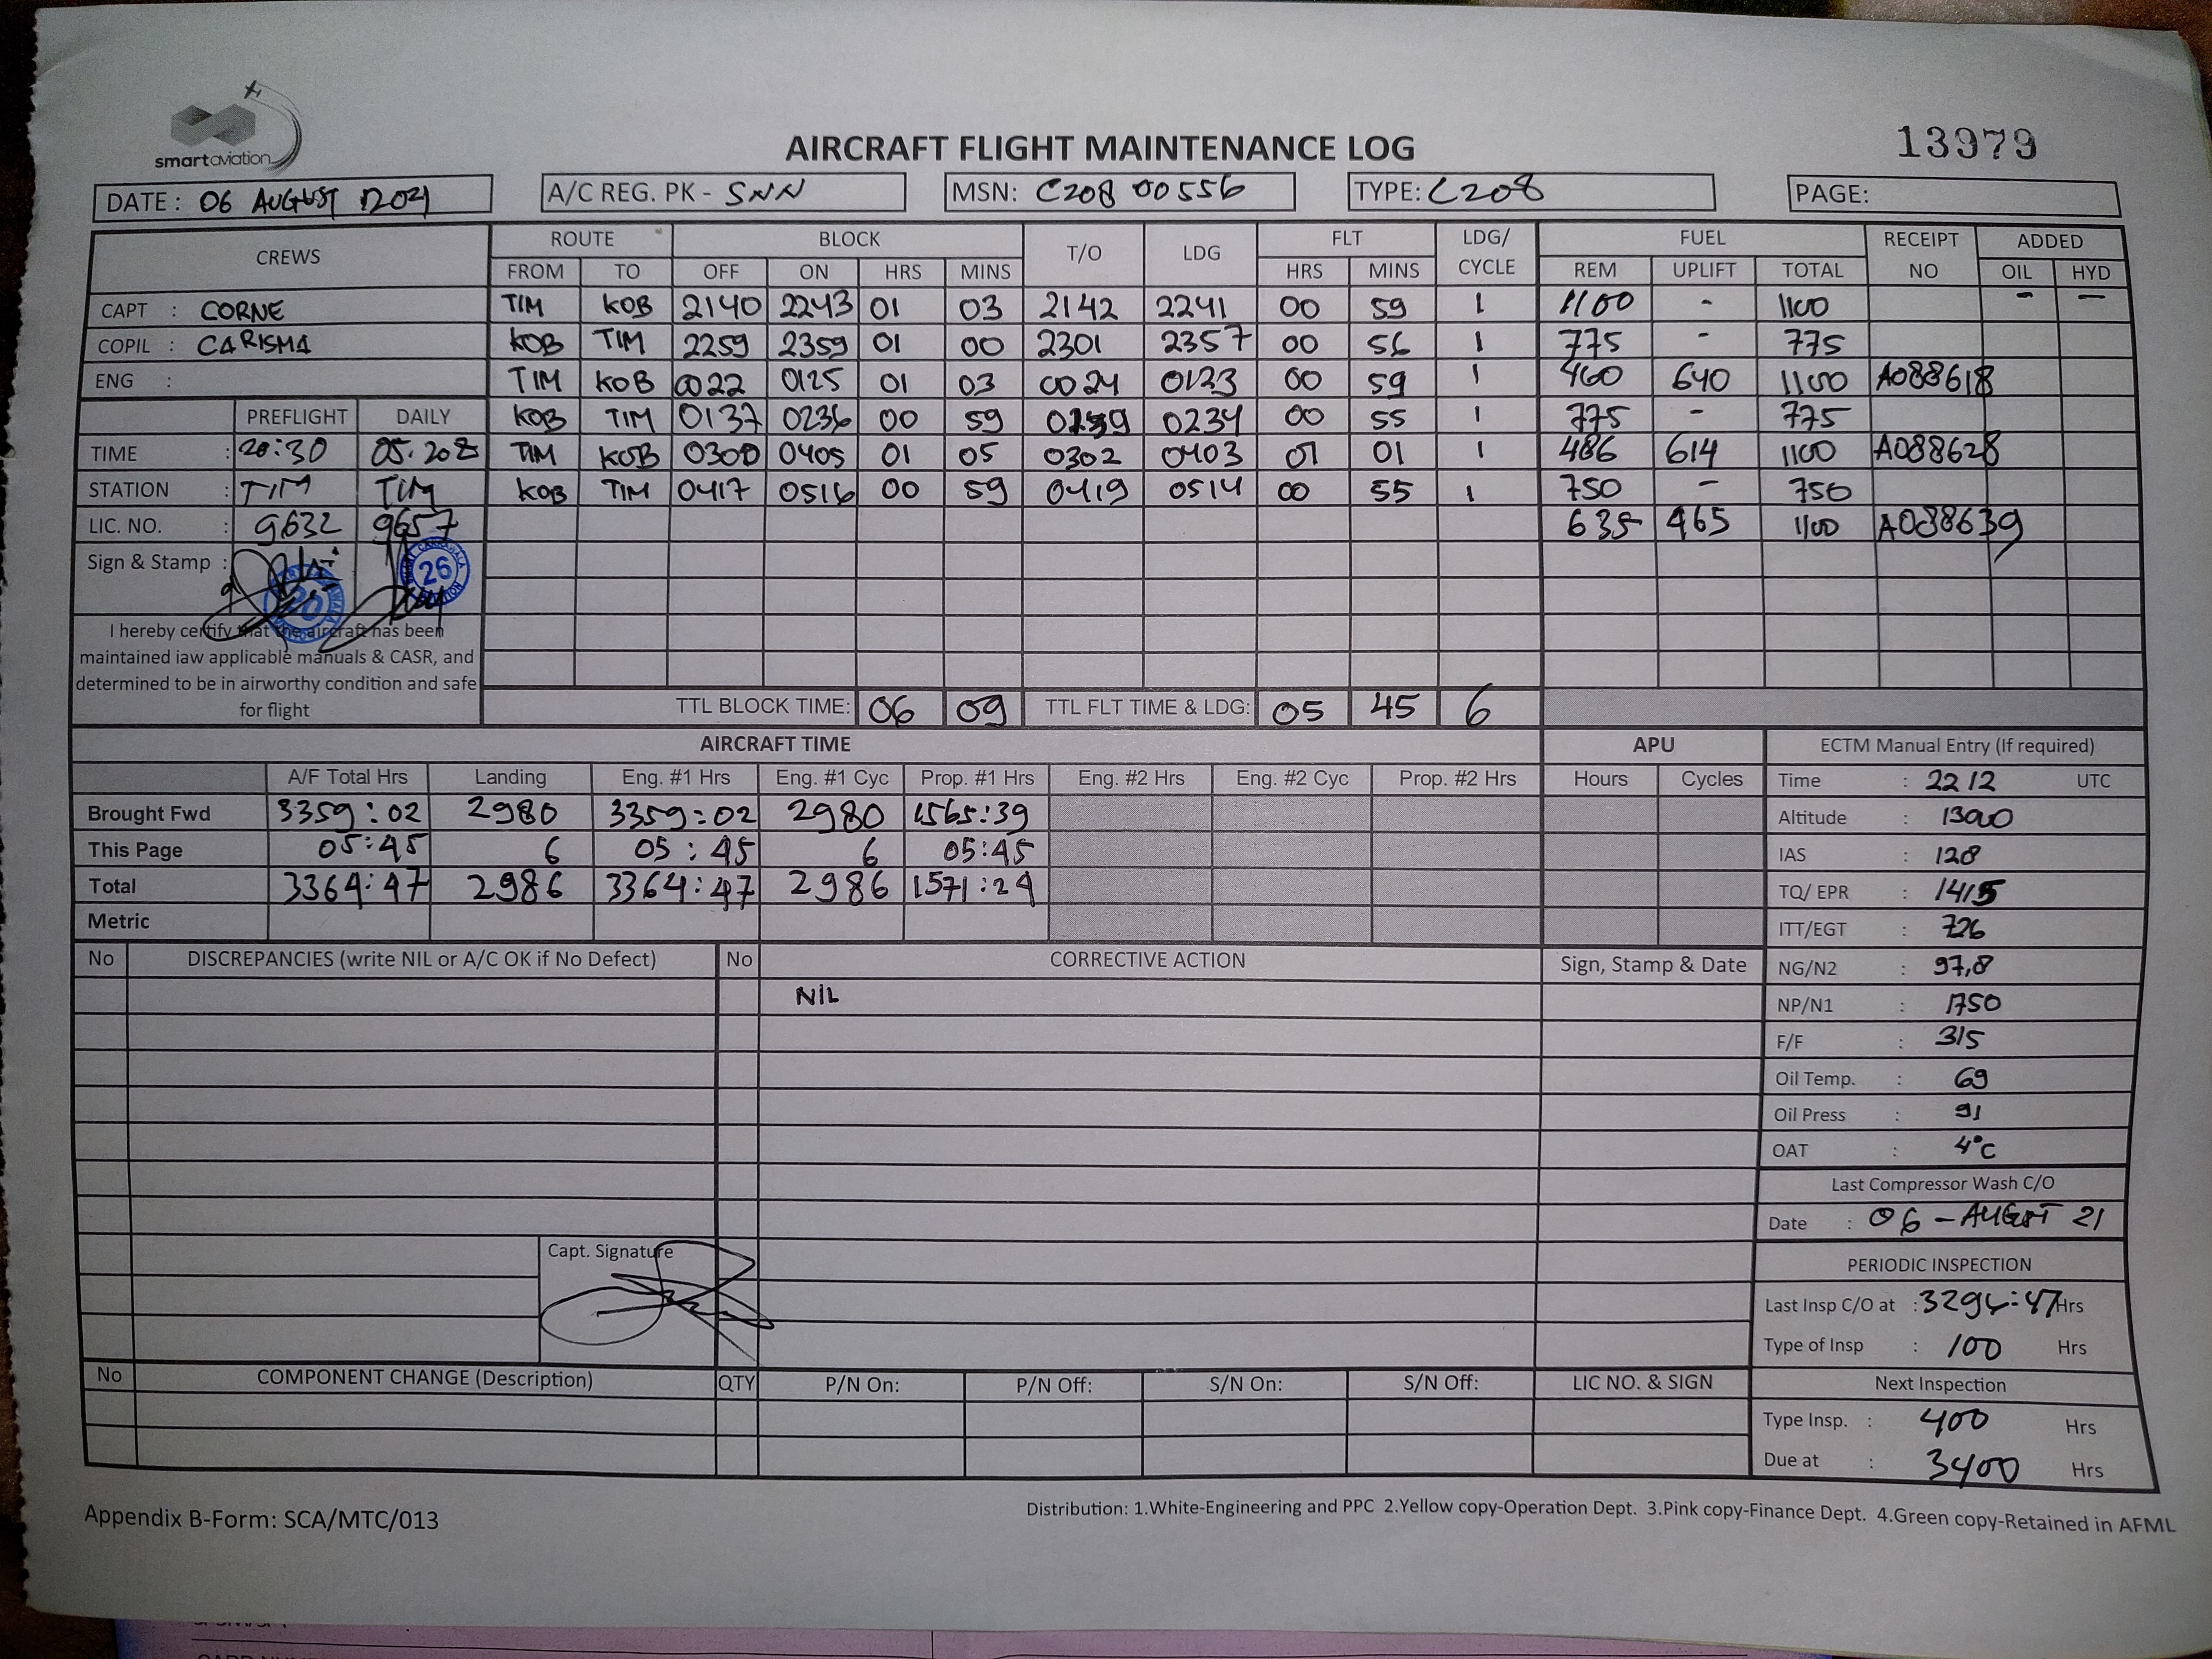 smartaviation
AIRCRAFT FLIGHT MAINTENANCE LOG
13979
DATE : 06 AUGUST 2021 A/C REG. PK - SNN MSN: C208 00556 TYPE: C208 PAGE:
CREWS ROUTE BLOCK T/O LDG FLT LDG/ CYCLE FUEL RECEIPT NO ADDED
FROM TO OFF ON HRS MINS HRS MINS REM UPLIFT TOTAL OIL HYD
CAPT : CORNE TIM KOB 2140 2243 01 03 2142 2241 00 59 1 1100 - 1100 - -
COPIL : CARISMA KOB TIM 2259 2359 01 00 2301 2357 00 56 1 775 - 775
ENG : TIM KOB 0022 0125 01 03 0024 0123 00 59 1 460 640 1100 A088618
PREFLIGHT DAILY KOB TIM 0137 0236 00 59 0139 0234 00 55 1 775 - 775
TIME : 20:30 TIM KOB 0300 0405 01 05 0302 0403 01 01 1 486 614 1100 A088628
STATION : TIM TIM KOB TIM 0417 0516 00 59 0419 0514 00 55 1 750 - 750
LIC. NO. : 9632 9657 635 465 1100 A088639
Sign & Stamp :
20
26
I hereby certify that the aircraft has been
maintained iaw applicable manuals & CASR, and
determined to be in airworthy condition and safe
for flight
TTL BLOCK TIME: 06 09 TTL FLT TIME & LDG: 05 45 6
AIRCRAFT TIME APU ECTM Manual Entry (If required)
A/F Total Hrs Landing Eng. #1 Hrs Eng. #1 Cyc Prop. #1 Hrs Eng. #2 Hrs Eng. #2 Cyc Prop. #2 Hrs Hours Cycles Time : 2212 UTC
Brought Fwd 3359:02 2980 3359:02 2980 1565:39 Altitude : 13000
This Page 05:45 6 05:45 6 05:45 IAS : 128
Total 3364:47 2986 3364:47 2986 1571:24 TQ/ EPR : 1415
Metric ITT/EGT : 726
No DISCREPANCIES (write NIL or A/C OK if No Defect) No CORRECTIVE ACTION Sign, Stamp & Date NG/N2 : 97,8
NIL NP/N1 : 1750
F/F : 315
Oil Temp. : 69
Oil Press : 91
OAT : 4°C
Last Compressor Wash C/O
Date : 06 - AUGUST 21
Capt. Signature
PERIODIC INSPECTION
Last Insp C/O at : Hrs
Type of Insp : 100 Hrs
No COMPONENT CHANGE (Description) QTY P/N On: P/N Off: S/N On: S/N Off: LIC NO. & SIGN Next Inspection
Type Insp. : 400 Hrs
Due at : 3400 Hrs
Appendix B-Form: SCA/MTC/013 Distribution: 1.White-Engineering and PPC 2.Yellow copy-Operation Dept. 3.Pink copy-Finance Dept. 4.Green copy-Retained in AFML